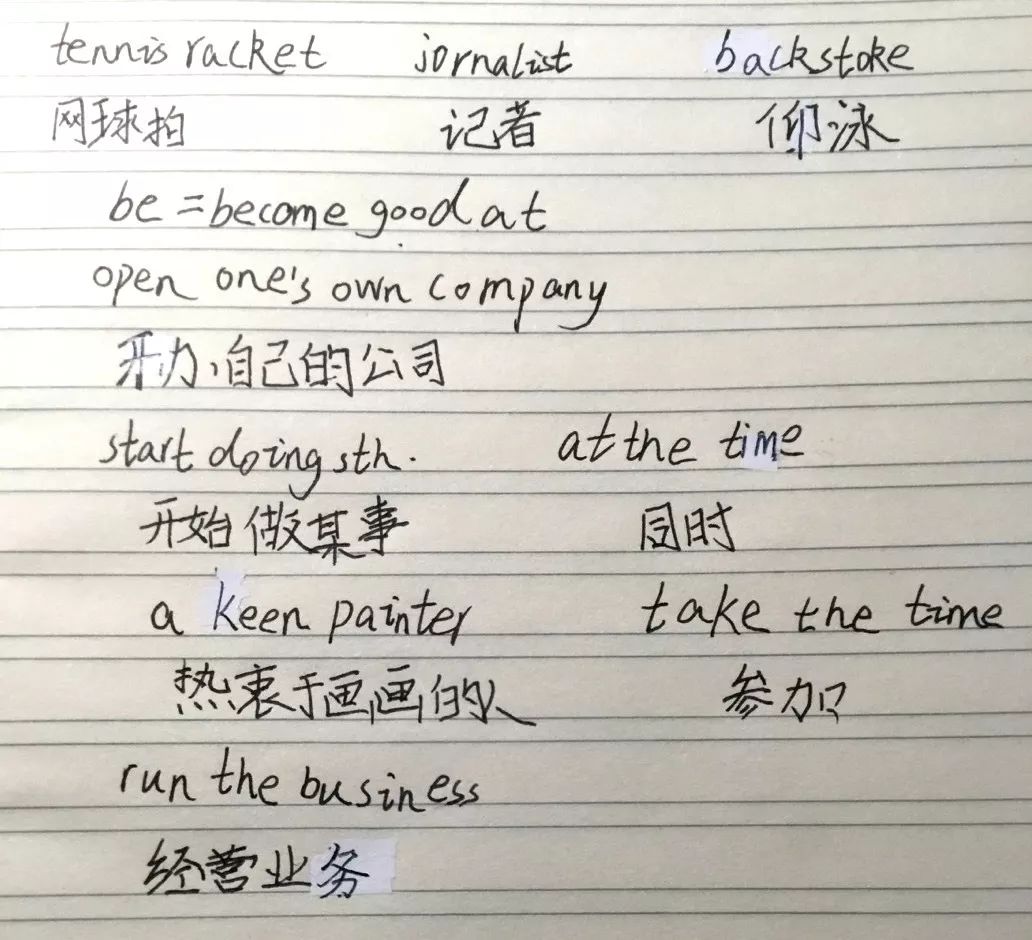 tennis racket jornalist backstoke
网球拍 记者 仰泳
be = become good at
open one's own company
开办自己的公司
start doing sth. at the time
开始做某事 同时
a keen painter take the time
热衷于画画的人 参加
run the business
经营业务